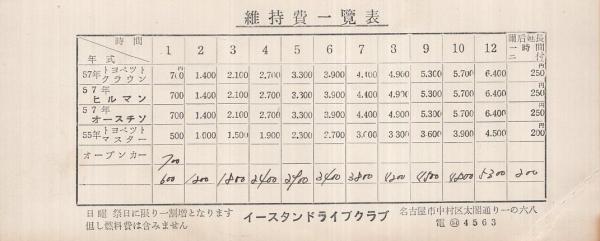 維持費一覧表
時間
年式
1 2 3 4 5 6 7 8 9 10 12 爾后毎一時ニ 長間付
57年 トヨペツト クラウン 円 700 1.400 2.100 2.700 3.300 3.900 4.400 4.900 5.300 5.700 6.400 円 250
57年 ヒルマン 700 1.400 2.100 2.700 3.300 3.900 4.400 4.900 5.300 5.700 6.400 円 250
57年 オースチン 700 1.400 2.100 2.700 3.300 3.900 4.400 4.900 5.300 5.700 6.400 円 250
55年 トヨペツト マスター 500 1.000 1.500 1.900 2.300 2.700 3.000 3.300 3.600 3.900 4.500 円 200
オープンカー 700
600 1200 1800 2400 2900 3400 3800 4200 4500 4800 5300 200
日曜祭日に限り一割増となります
但し燃料費は含みません
イースタンドライブクラブ
名古屋市中村区太閤通り一の六八
電 4563